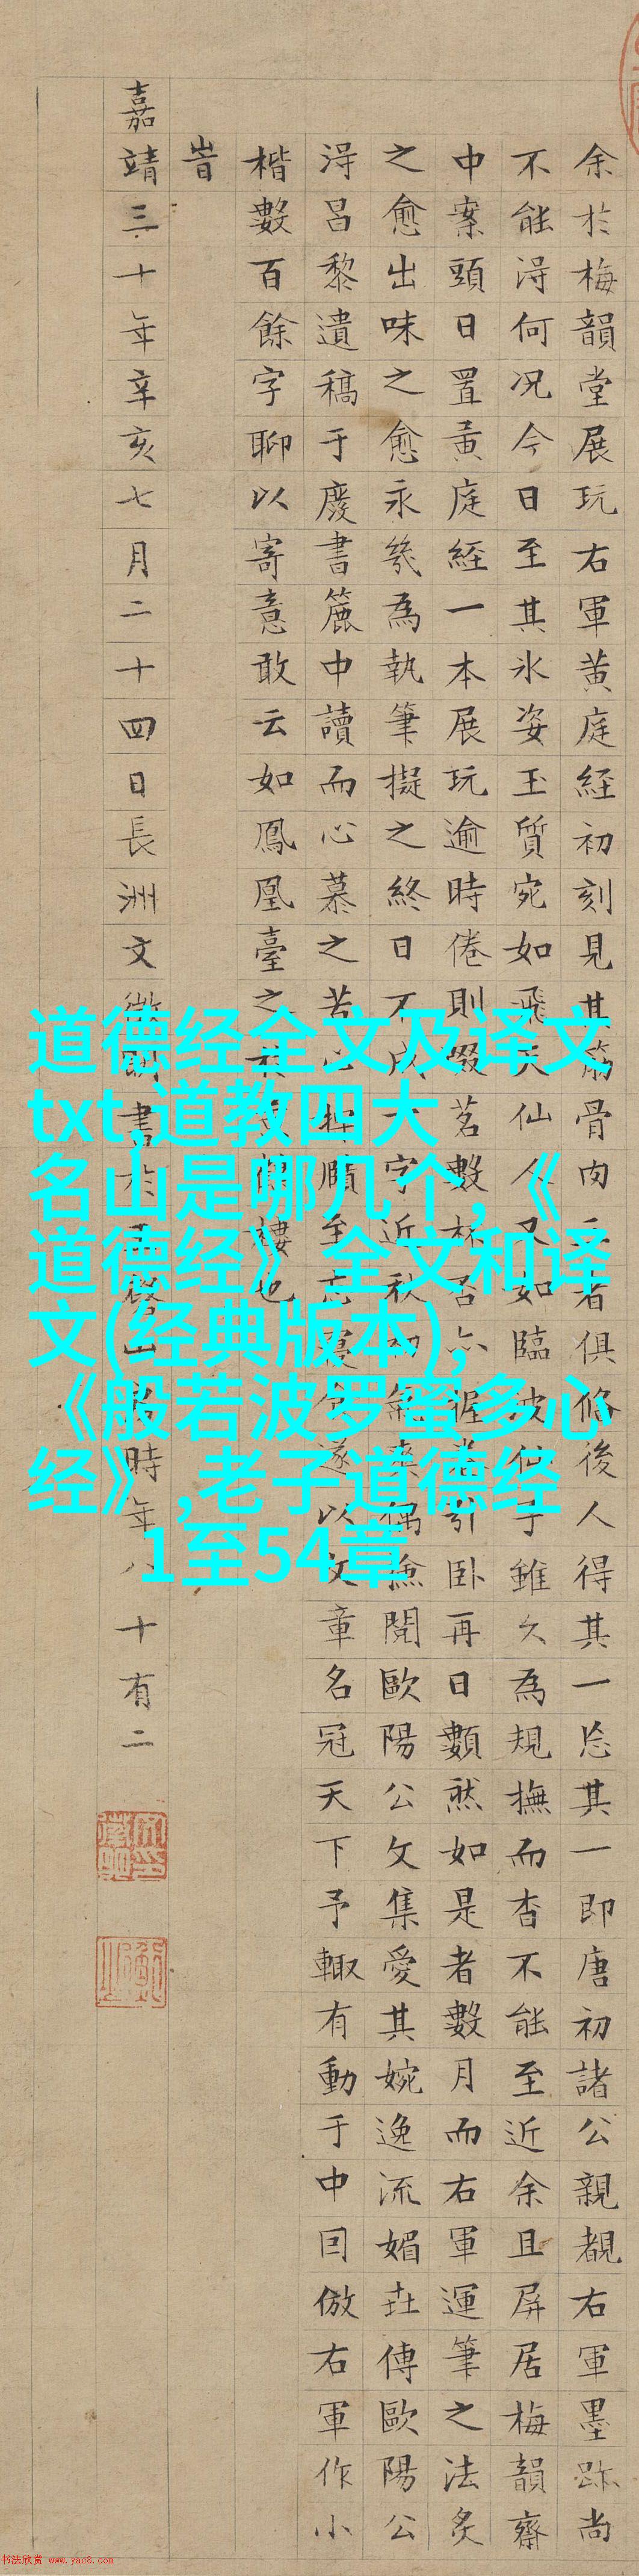 余於梅韻堂展玩右軍黄庭経初刻見其筋骨肉三者俱俻後人得其一忘其一即唐初諸公親覩右軍墨跡尚
不能淂何况今日至其氷姿玉質宛如飛天仙人又如臨波仙子雖久為規撫而杳不能至近余且屏居梅韻齋
中案頭日置黄庭経一本展玩逾時倦則啜茗數杯否亦握卷引卧再日數然如是者數月而右軍運筆之法炙
之愈出味之愈永㡬為執筆擬之終日不成一字近秋初氣爽偶閲歐陽公文集愛其婉逸流媚傳歐陽公
淂吕黎遺稿于廢書簏中讀而心慕之苦心探賾至忘寢食遂以文章名冠天下予輙有動于中囙倣右軍作小
楷數百餘字聊以寄意敢云如鳳凰臺之樓也
峕
嘉靖三十年辛亥七月二十四日長洲文徵明書於玉磬山房時年八十有二
道德经全文及译文
txt,道教四大
名山是哪几个,《
道德经》全文和译
文(经典版本),
《般若波罗蜜多心
经》,老子道德经
1至54章
书法欣赏 www.yac8.com